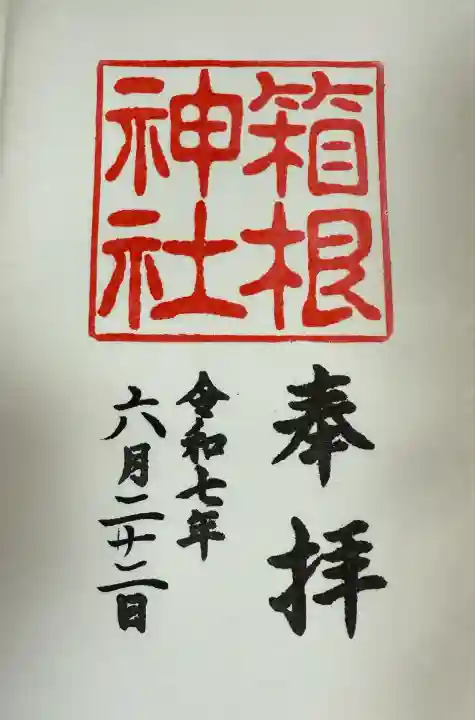 箱根
神社
奉拝
令和七年
六月二廿二日